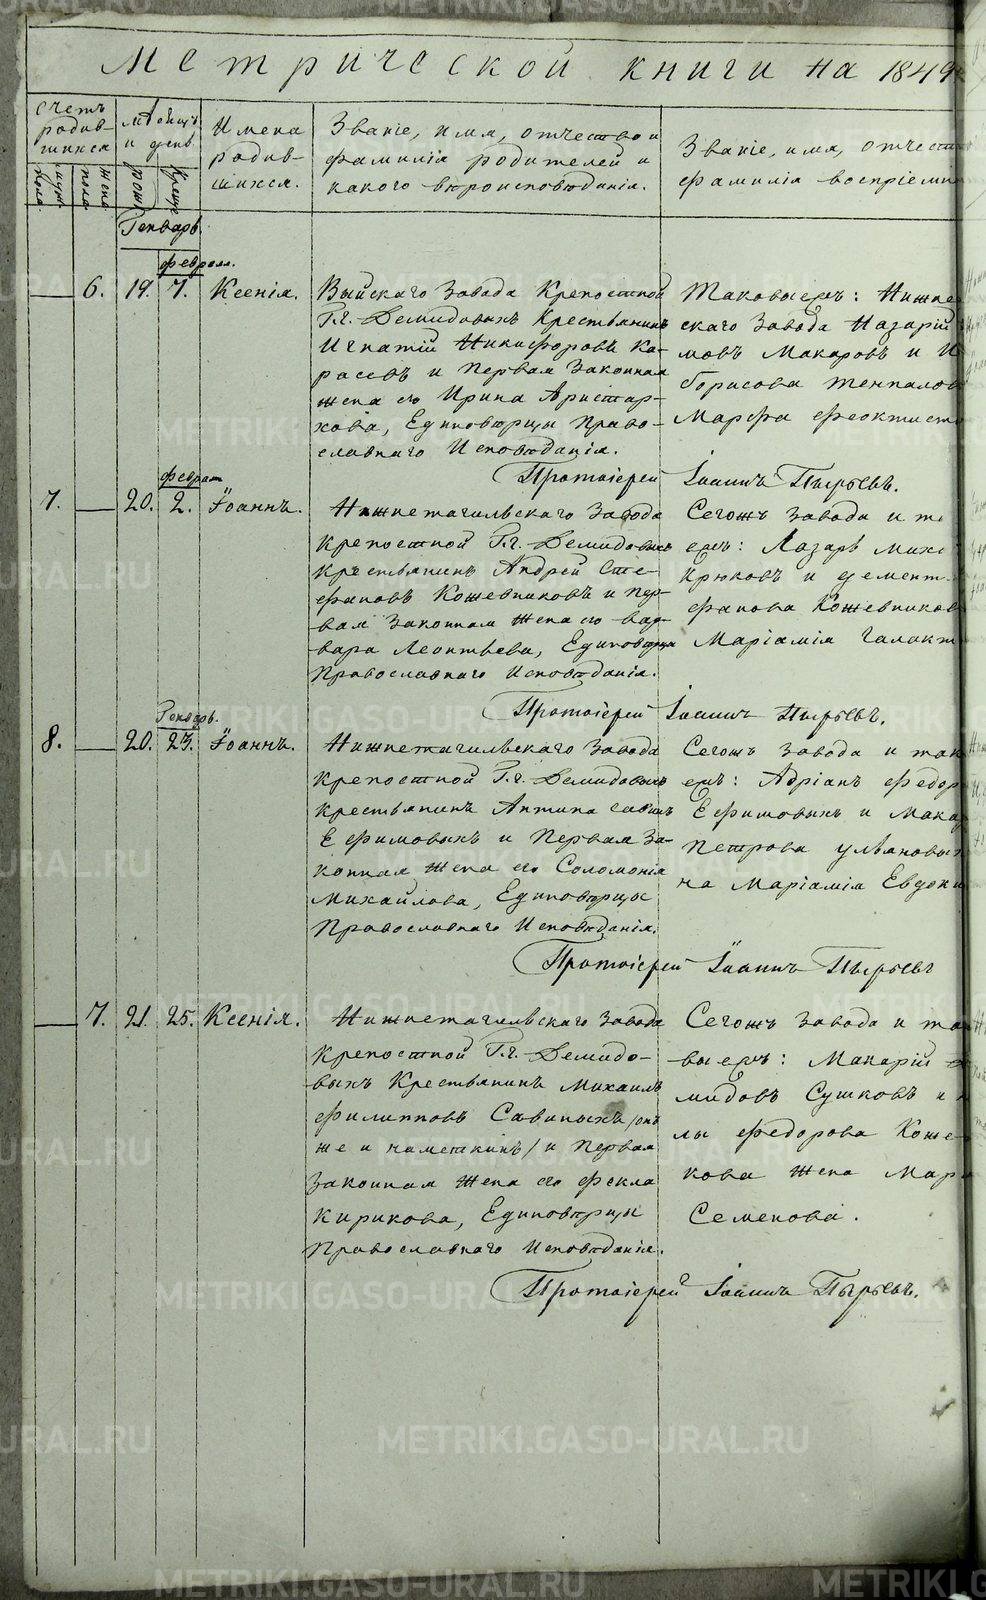 Метрической книги на 1849
Счетъ родив-шихся
Мѣсяцъ и день
Имена родив-шихся.
Званіе, имя, отчество и фамилія родителей и какого вѣроисповѣданія.
Званіе, имя, отчест
фамилія воспріемни
муж. пола.
жен. пола.
рож
Крещ
Генварь
Феврал.
6. 19. 7. Ксенія.
Выйскаго Завода Крѣпостной
Г.г. Демидовыхъ Крестьянинъ
Игнатій Никифоровъ Ка-
расевъ и Первая Законная
жена его Ирина Аристар-
хова, Единовѣрцы Право-
славнаго Исповѣданія.
Таковыежъ: Нижне
скаго Завода Назарій
мовъ Макаровъ и И
борисова
Марфа Феоктист
Протоіерей Іоаннъ Пырьевъ.
Феврал
7. 20. 2. Іоаннъ.
Нижнетагильскаго Завода
Крѣпостной Г.г. Демидовыхъ
Крестьянинъ Андрей Сте-
фановъ Кожевниковъ и Пер-
вая Законная жена его Вар-
вара Леонтьева, Единовѣрцы
Православнаго Исповѣданія.
Сегожъ Завода и та
ежъ: Лазарь Миха
Крюковъ и Демент
фанова Кожевников
Маріамія Галакт
Протоіерей Іоаннъ Пырьевъ.
Генварь.
8. 20. 23. Іоаннъ.
Нижнетагильскаго Завода
Крѣпостной Г.г. Демидовыхъ
Крестьянинъ Антипа Савинъ
Ефимовыхъ и Первая За-
конная жена его Соломонія
Михайлова, Единовѣрцы
Православнаго Исповѣданія.
Сегожъ Завода и так
ежъ: Адріанъ Федор
Ефимовыхъ и Мака
Петрова Ульяновых
на Маріамія Евдоки
Протоіерей Іоаннъ Пырьевъ
7. 21. 25. Ксенія.
Нижнетагильскаго Завода
Крѣпостной Г.г. Демидо-
выхъ Крестьянинъ Михаилъ
Филипповъ Савиныхъ /онъ
же и Чаметкинъ/ и Первая
Законная жена его Фекла
Кирикова, Единовѣрцы
Православнаго Исповѣданія.
Сегожъ Завода и та
выежъ: Макарій
мидовъ Сушковъ и
лы Федорова Коже
кова жена Мар
Семенова.
Протоіерей Іоаннъ Пырьевъ.
METRIKI.GASO-URAL.RU